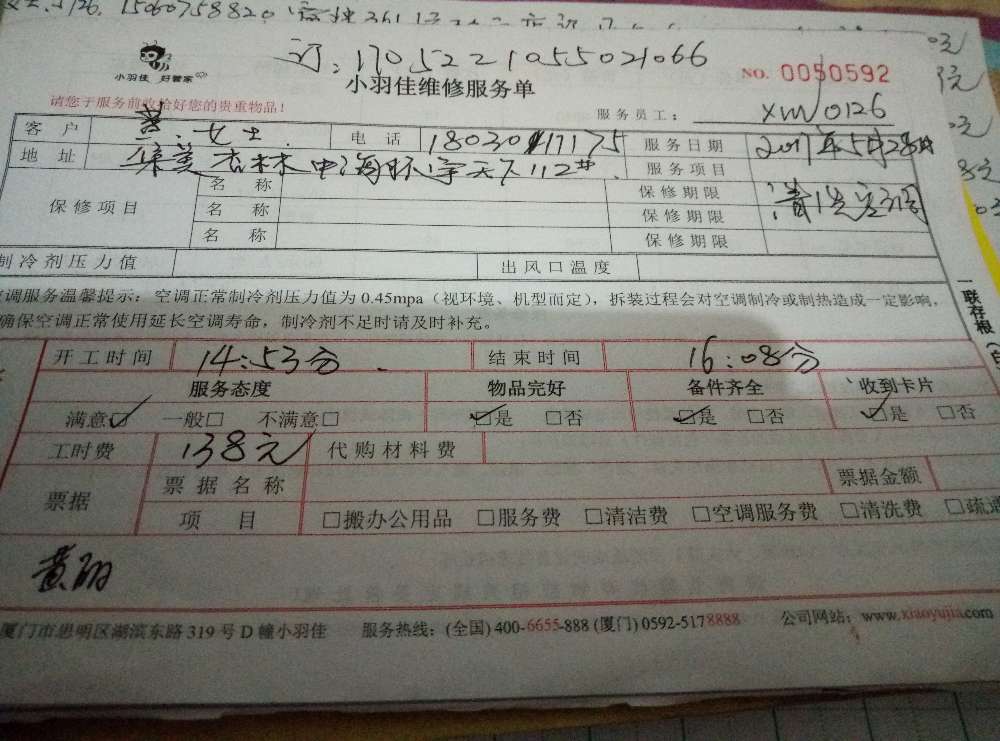 15060758820
订:1705221055021066
小羽佳 好管家
小羽佳维修服务单
NO. 0050592
请您于服务前收拾好您的贵重物品!
服务员工: XM0126
客户 黄.女士 电话 服务日期 2017年5月28日
地址 集美杏林中海环宇天下112# 服务项目 清洗空调
保修项目 名称 保修期限
名称 保修期限
名称 保修期限
制冷剂压力值 出风口温度
空调服务温馨提示:空调正常制冷剂压力值为0.45mpa(视环境、机型而定),拆装过程会对空调制冷或制热造成一定影响,
确保空调正常使用延长空调寿命,制冷剂不足时请及时补充。
一联存根
开工时间 14:53分 结束时间 16:08分
服务态度 物品完好 备件齐全 收到卡片
满意☑ 一般□ 不满意□ ☑是 □否 ☑是 □否 ☑是 □否
工时费 138元 代购材料费
票据 票据名称 票据金额
项目 □搬办公用品 □服务费 □清洁费 □空调服务费 □清洗费 □疏通
厦门市思明区湖滨东路319号D幢小羽佳 服务热线:(全国)400-6655-888(厦门)0592-5178888 公司网站:www.xiaoyujia.com